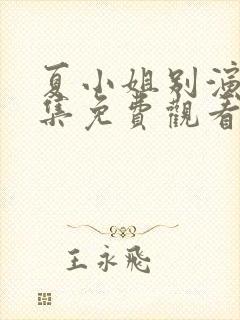 夏小姐别演
集免費觀看
王永飛